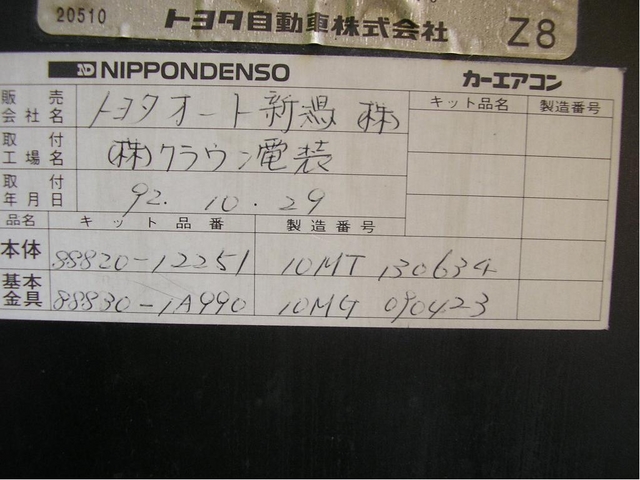 20510 トヨタ自動車株式会社 Z8
ND NIPPONDENSO カーエアコン
販売会社名 トヨタオート新潟(株) キット品名 製造番号
取付工場名 (株)クラウン電装
取付年月日 92.10.29
品名 キット品番 製造番号
本体 88820-12251 10MT 130634
基本金具 88830-1A990 10MG 090423